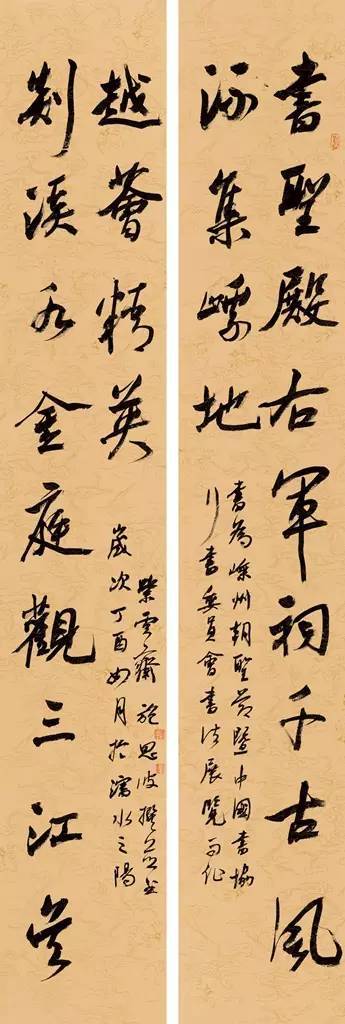 書聖殿右軍祠千古風
流集嵊地
書為嵊州朝聖節暨中國書協
行書委員會書法展覽而作
剡溪水金庭觀三江吳
越薈精英
歲次丁酉如月於濠水之陽
紫雲齋施恩波撰並書